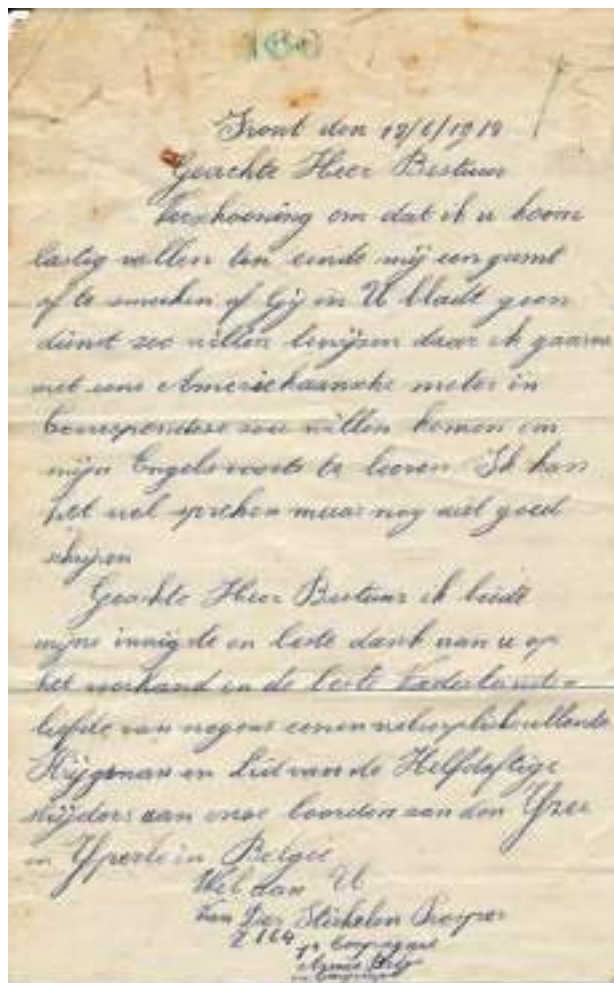 Front den 19/6/1918
Geachte Heer Bestuur
Verschooning om dat ik u koom
lastig vallen ten einde mij een gunst
af te smeeken of Gij in U bladt geen
dienst zoo willen bewijzen daar ik gaarne
met eene Americkaansche meter in
Correspondese zou willen komen om
mijn Engels voorts te leeren Ik kan
het wel spreken maar nog niet goed
schrijven
Geachte Heer Bestuur ik biede
mijne innigste en beste dank aan u op
het voorhand en de beste Vaderlands
liefde van nogens eenen
Krijgsman en Lid van de Helfdaftige
strijders aan onse boorden van den Yzer
en Yperle in België
Wel dan U
Van Der Stichelen Prosper
Z 164 Compagnie